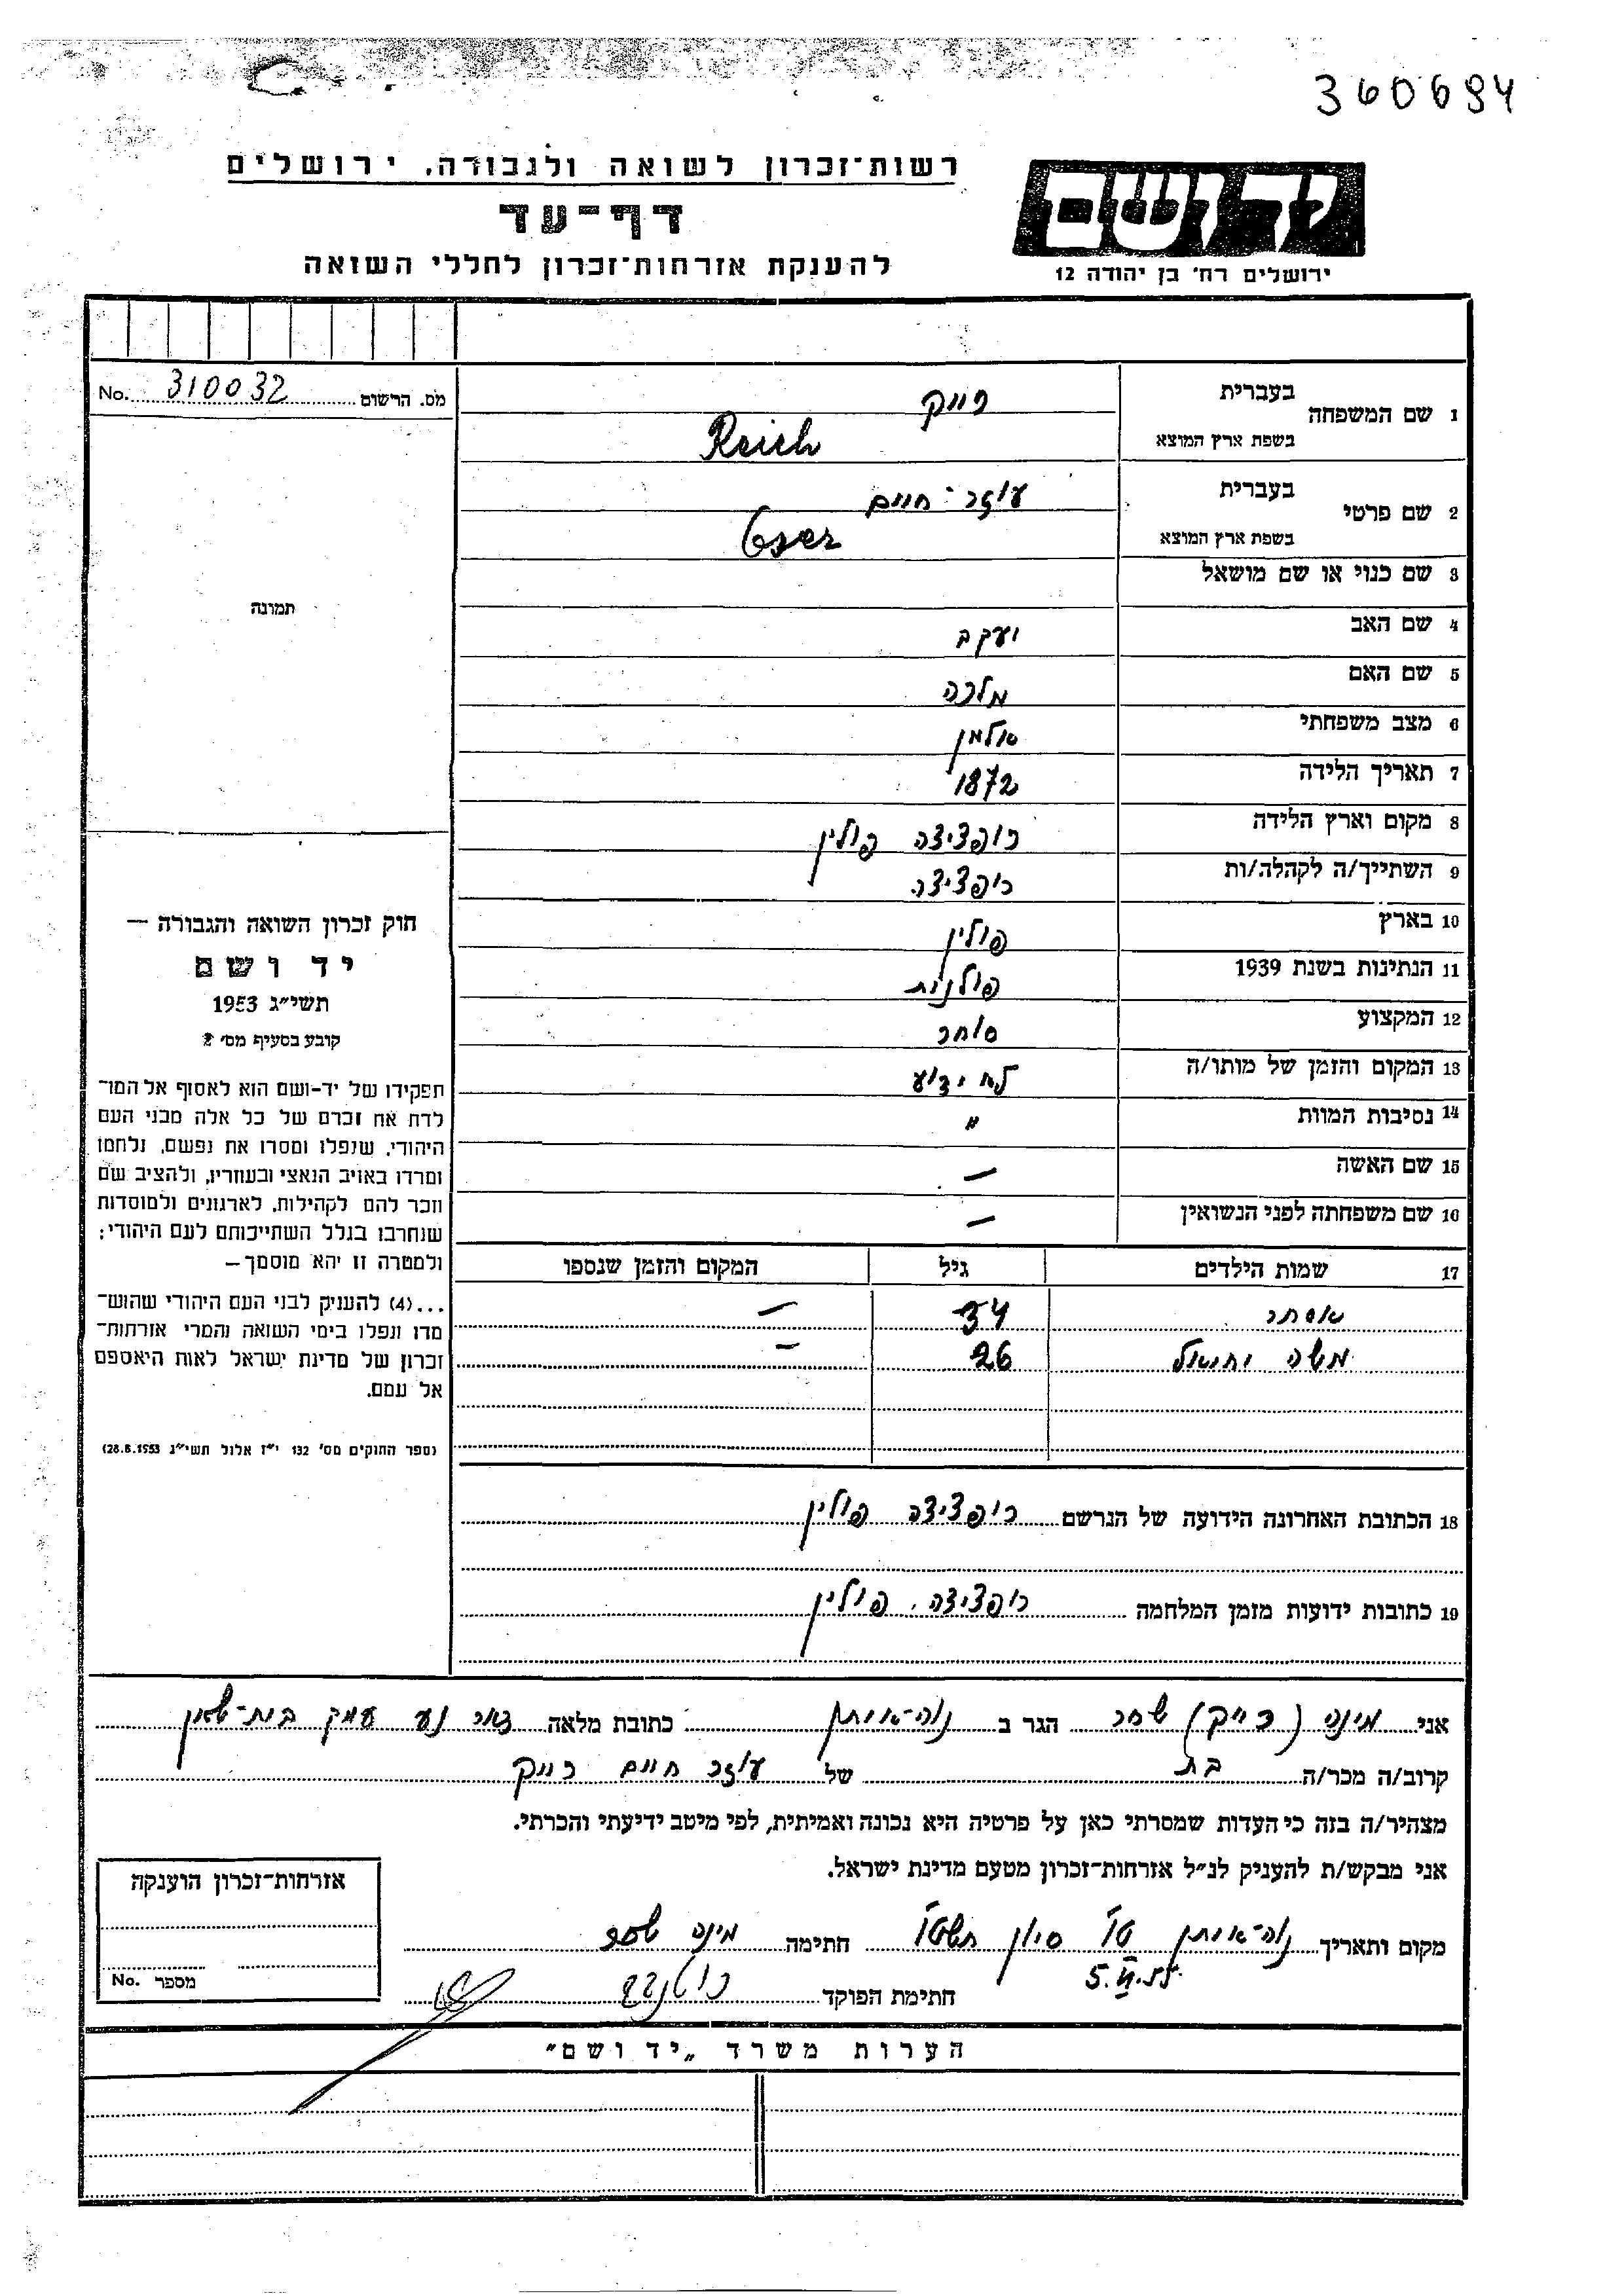 360694
רשות־זכרון לשואה ולגבורה, ירושלים
ידושם
דף־עד
להענקת אזרחות־זכרון לחללי השואה
ירושלים רח' בן יהודה 12
מס. הרשום 310032 No.
1 שם המשפחה בעברית רייק
בשפת ארץ המוצא Reich
2 שם פרטי בעברית עוזר־חיים
בשפת ארץ המוצא Oser
3 שם כנוי או שם מושאל
תמונה
4 שם האב יעקב
5 שם האם מלכה
6 מצב משפחתי אלמן
7 תאריך הלידה 1872
8 מקום וארץ הלידה רופציצה פולין
9 השתייך/ה לקהלה/ות רופציצה
10 בארץ פולין
11 הנתינות בשנת 1939 פולנית
12 המקצוע סוחר
13 המקום והזמן של מותו/ה לא ידוע
14 נסיבות המוות "
15 שם האשה —
16 שם משפחתה לפני הנשואין —
17 שמות הילדים גיל המקום והזמן שנספו
אסתר 34 —
משה יחיאל 26 —
18 הכתובת האחרונה הידועה של הנרשם רופציצה פולין
19 כתובות ידועות מזמן המלחמה רופציצה, פולין
חוק זכרון השואה והגבורה —
יד ושם
תשי"ג 1953
קובע בסעיף מס' 2
תפקידו של יד-ושם הוא לאסוף אל המו־
לדת את זכרם של כל אלה מבני העם
היהודי, שנפלו ומסרו את נפשם, נלחמו
ומרדו באויב הנאצי ובעוזריו, ולהציב שם
וזכר להם לקהילות, לארגונים ולמוסדות
שנחרבו בגלל השתייכותם לעם היהודי;
ולמטרה זו יהא מוסמך —
...(4) להעניק לבני העם היהודי שהוש־
מדו ונפלו בימי השואה והמרי אזרחות־
זכרון של מדינת ישראל לאות היאספם
אל עמם.
(ספר החוקים מס' 132 י"ז אלול תשי"ג 28.8.1953)
אני מינה (רייק) שחר הגר ב נוה־איתן כתובת מלאה דאר נע עמק בית־שאן
קרוב/ה מכר/ה בת של עוזר חיים רייק
מצהיר/ה בזה כי העדות שמסרתי כאן על פרטיה היא נכונה ואמיתית, לפי מיטב ידיעתי והכרתי.
אני מבקש/ת להעניק לנ"ל אזרחות־זכרון מטעם מדינת ישראל.
מקום ותאריך נוה־איתן ט"ו סיון תשט"ו חתימה מינה שחר
5.VI.55
חתימת הפוקד
אזרחות־זכרון הוענקה
מספר No.
הערות משרד „יד ושם"